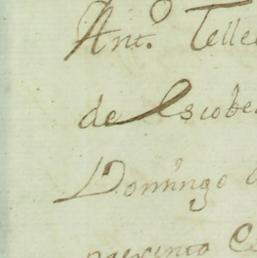 Ant.º Telle
de Escobe
Domingo